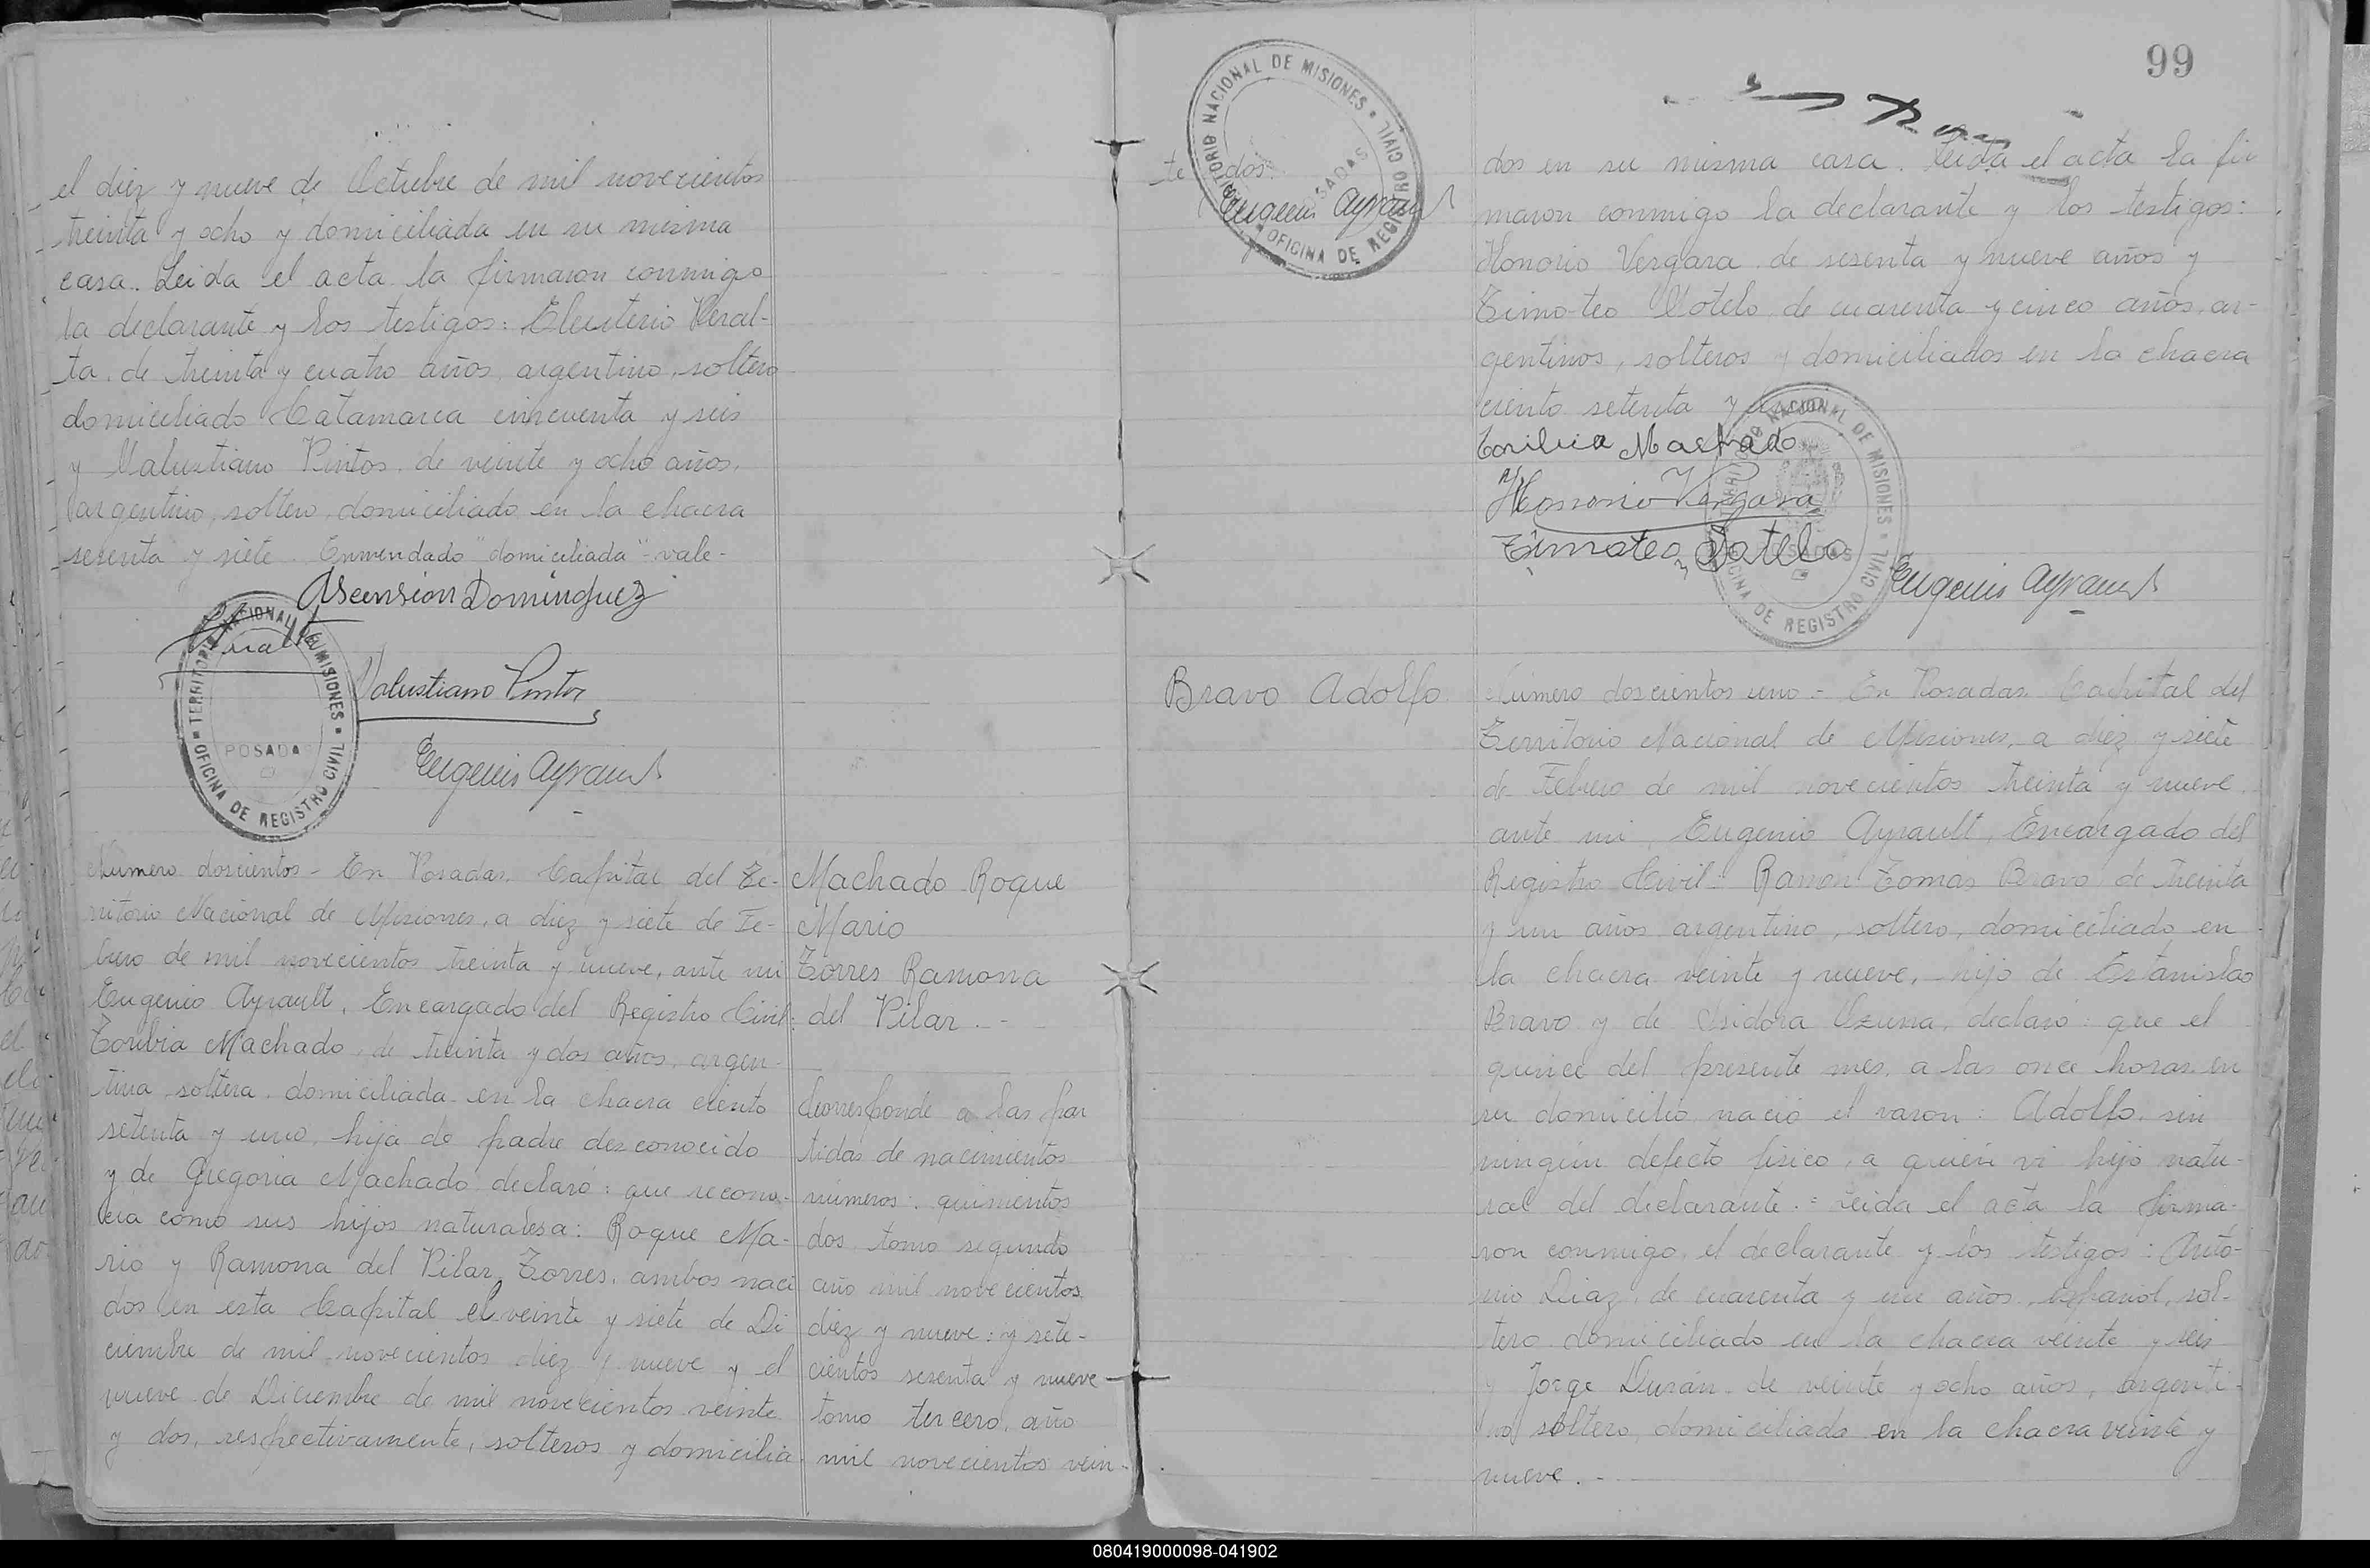 el diez y nueve de Octubre de mil novecientos
treinta y ocho y domiciliada en su misma
casa. Leida el acta la firmaron conmigo
la declarante y los testigos: Eleuterio Peral-
ta, de treinta y cuatro años, argentino, soltero
domiciliado Catamarca cincuenta y seis
y Salustiano Pintos, de veinte y ocho años,
argentino, soltero, domiciliado en la chacra
sesenta y siete. Enmendado "domiciliada"-vale-
Ascension Dominguez
Salustiano Pintos
Eugenio Ayrault
TERRITORIO NACIONAL DE MISIONES
POSADAS
OFICINA DE REGISTRO CIVIL
Número doscientos - En Posadas, Capital del Te-
rritorio Nacional de Misiones, a diez y siete de Fe-
brero de mil novecientos treinta y nueve, ante mi
Eugenio Ayrault, Encargado del Registro Civil:
Toribia Machado, de treinta y dos años, argen-
tina soltera, domiciliada en la chacra ciento
setenta y uno, hija de padre desconocido
y de Gregoria Machado declaró: que recono-
cia como sus hijos naturalesa: Roque Ma-
rio y Ramona del Pilar Torres, ambos naci
dos en esta Capital el veinte y siete de Di
ciembre de mil novecientos diez y nueve y el
nueve de Diciembre de mil novecientos veinte
y dos, respectivamente, solteros y domicilia
Machado Roque
Mario
Torres Ramona
del Pilar.-
Corresponde a las par
tidas de nacimientos
números: quinientos
dos, tomo segundo
año mil novecientos
diez y nueve: y sete-
cientos sesenta y nueve
tomo tercero, año
mil novecientos vein-
99
te dos.
TERRITORIO NACIONAL DE MISIONES
POSADAS
OFICINA DE REGISTRO CIVIL
Eugenio Ayrault
dos en su misma casa. Leida el acta la fir
maron conmigo la declarante y los testigos:
Honorio Vergara de sesenta y nueve años y
Timo-teo Sotelo, de cuarenta y cinco años, ar-
gentinos, solteros y domiciliados en la chacra
ciento setenta y uno.
Toribia Machado
Honorio Vergara
Timoteo Sotelo
Eugenio Ayrault
TERRITORIO NACIONAL DE MISIONES
POSADAS
OFICINA DE REGISTRO CIVIL
Bravo Adolfo
Número doscientos uno - En Posadas Capital del
Territorio Nacional de Misiones, a diez y siete
de Febrero de mil novecientos treinta y nueve
ante mi, Eugenio Ayrault, Encargado del
Registro Civil: Ramón Tomas Bravo, de treinta
y un años argentino, soltero, domiciliado en
la chacra veinte y nueve, hijo de Estanislao
Bravo y de Isidora Ozuna, declaró: que el
quince del presente mes, a las once horas en
su domicilio nació el varon: Adolfo, sin
ningún defecto fisico, a quien vi hijo natu-
ral del declarante.= Leida el acta la firma-
ron conmigo, el declarante y los testigos: Anto-
nio Diaz, de cuarenta y un años, español, sol-
tero domiciliado en la chacra veinte y seis
y Jorge Durán, de veinte y ocho años, argenti-
no soltero, domiciliado en la chacra veinte y
nueve.-
080419000098-041902